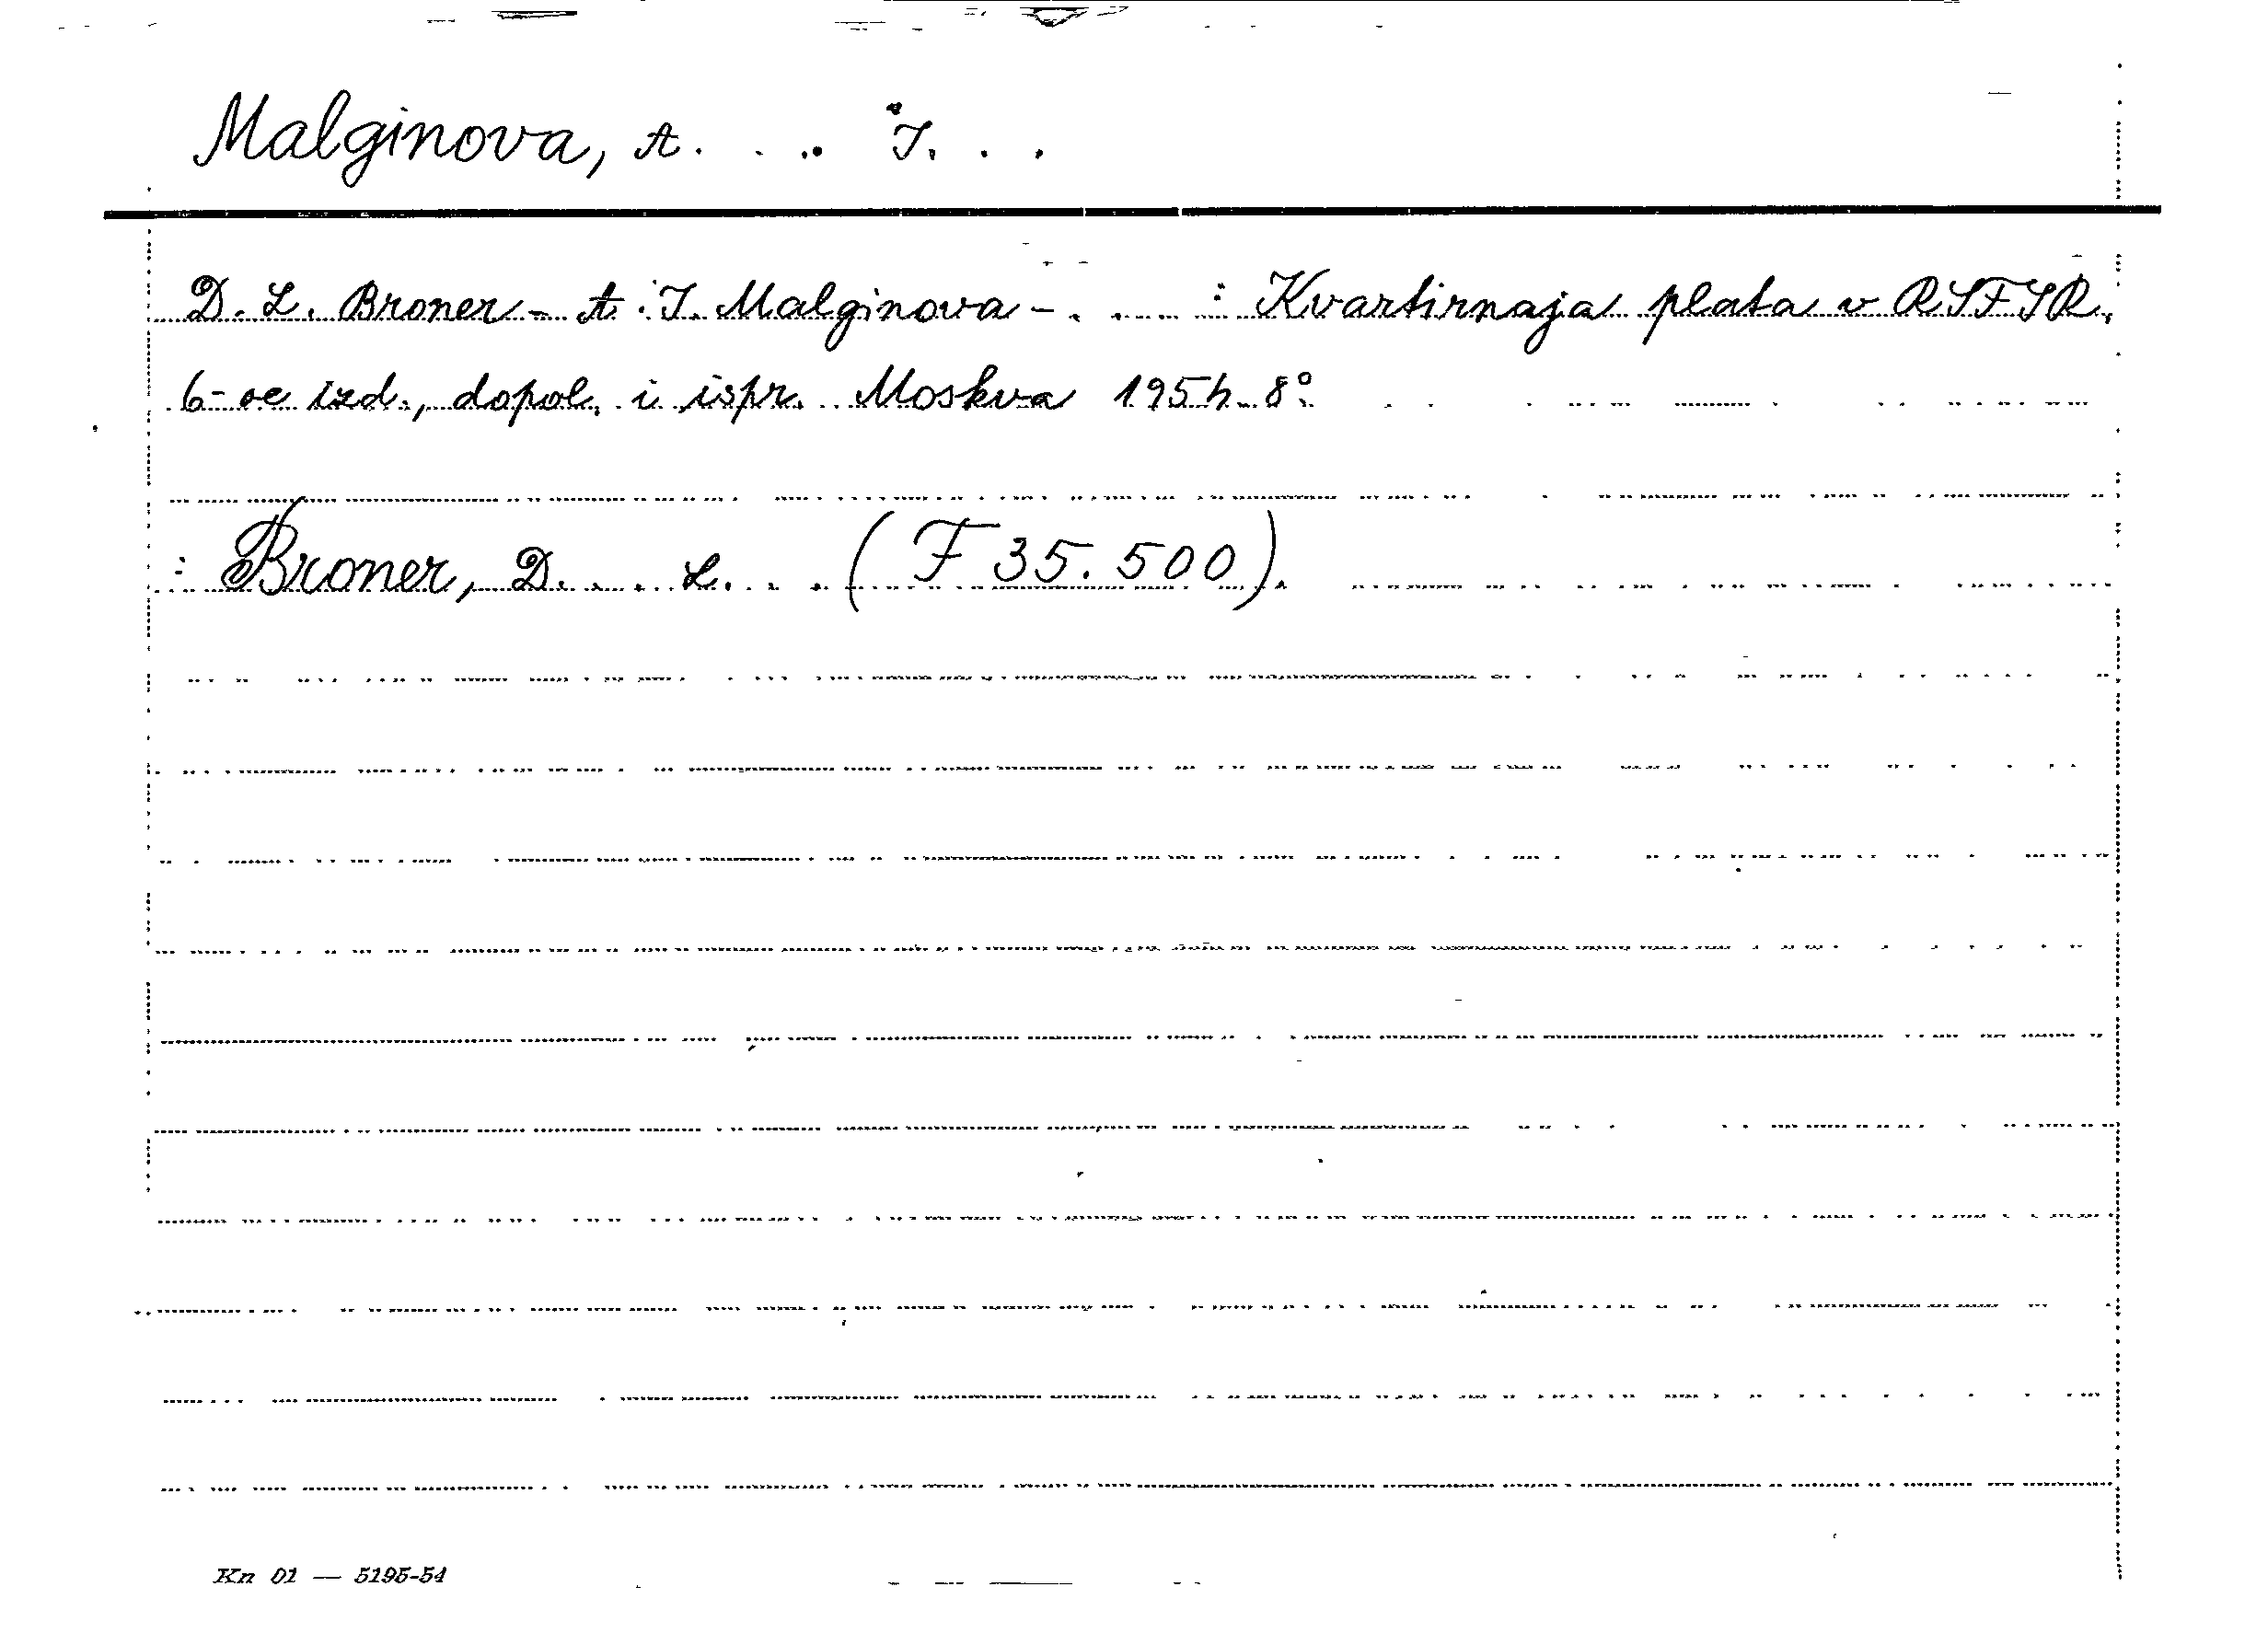 Malginova, A. . .. I. . .
D. L. Broner - A. I. Malginova - . ... : Kvartirnaja plata v RSFSR.
6-oe izd., dopol. i ispr. Moskva 1954. 8°
: Broner, D. ... L. . . (F 35.500).
Kn 01 — 5195-54